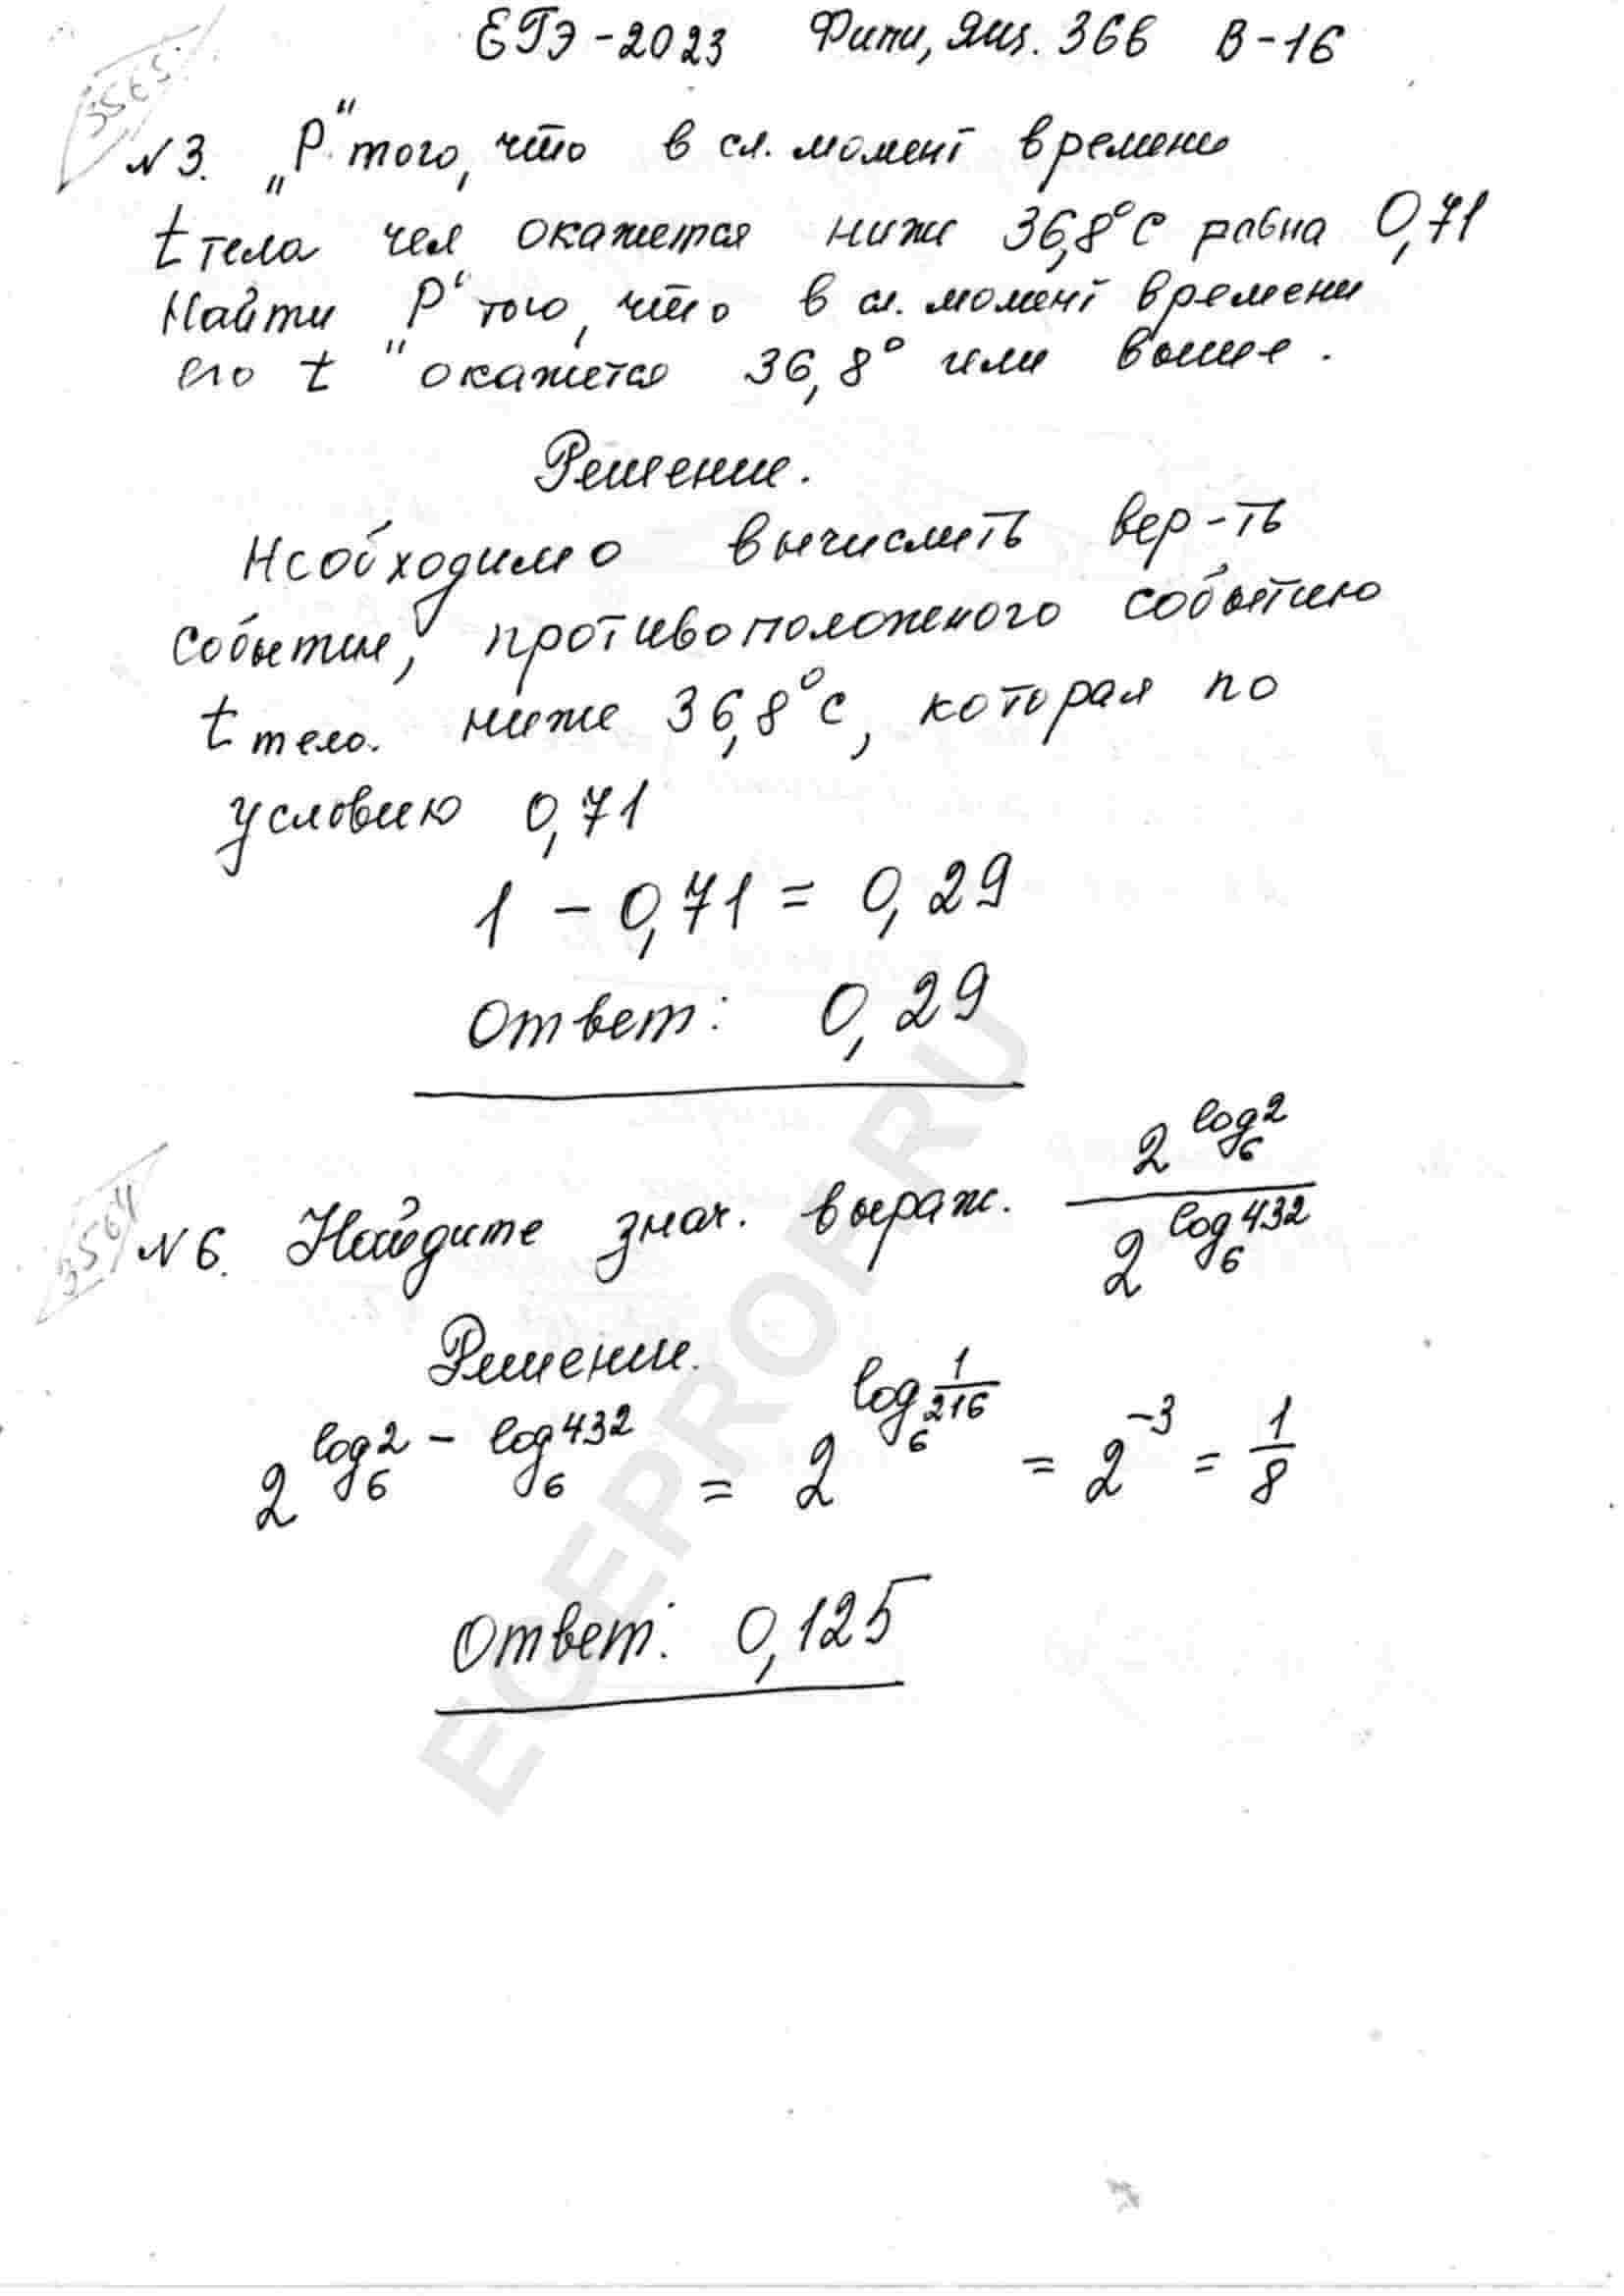 ЕГЭ-2023 Фипи, Ящ. 36в В-16
3565
№3. „Р“ того, что в сл. момент времени
t тела чел окажется ниже 36,8°С равна 0,71
Найти „Р“ того, что в сл. момент времени
его t окажется 36,8° или выше.
Решение.
Необходимо вычислить вер-ть
события, противоположного событию
t тела. ниже 36,8°С, которая по
условию 0,71
1 - 0,71 = 0,29
Ответ: 0,29
3564
№6. Найдите знач. выраж. 2^{log_6 2} / 2^{log_6 432}
Решение.
2^{log_6 2 - log_6 432} = 2^{log_6 1/216} = 2^{-3} = 1/8
Ответ: 0,125
EGEPROF.RU